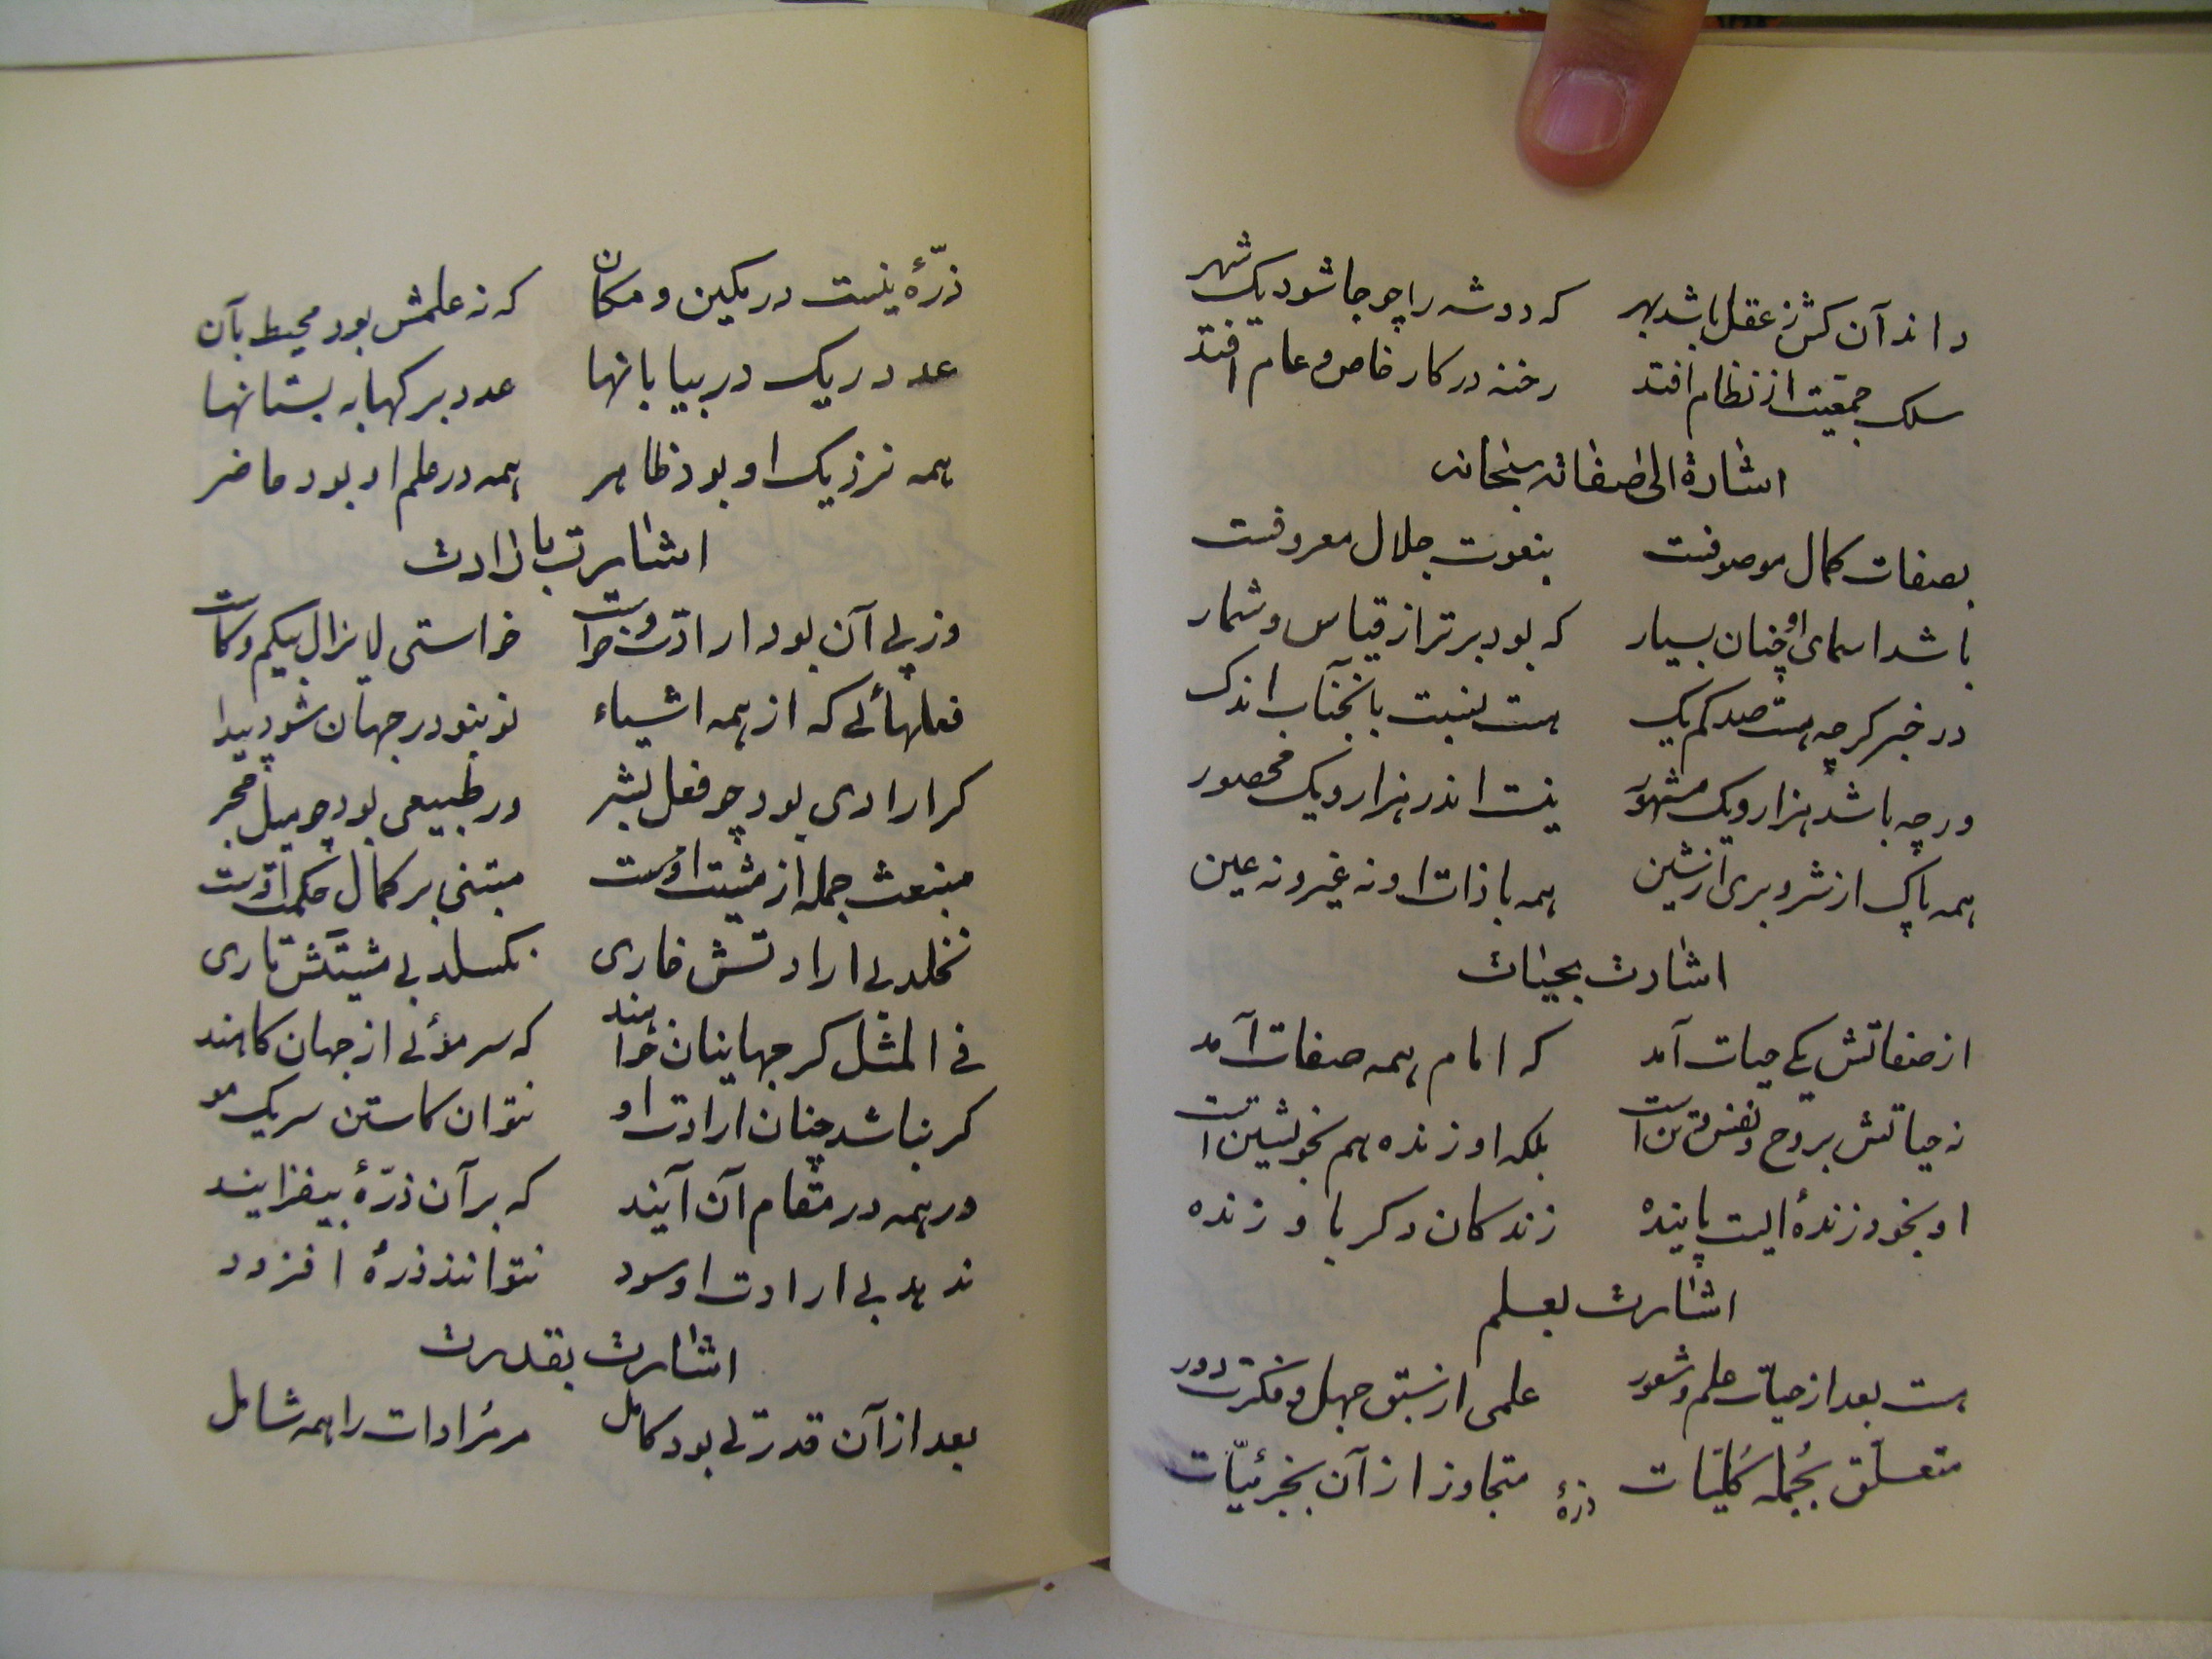 داند آن کش ز عقل باشد بهر که دو شه را چو جا شود یک شهر
سلک جمعیت از نظام افتد رخنه در کار خاص و عام افتد
اشارة الی صفاته سبحانه
بصفات کمال موصوفست بنعوت جلال معروفست
باشد اسمای او چنان بسیار که بود برتر از قیاس و شمار
در خبر کرچه هست صد کم یک هست بنسبت بآنجناب اندک
ورچه باشد هزار و یک مشهور نیست اندر هزار و یک محصور
همه پاک از شر و بری از شین همه با ذات او نه غیر و نه عین
اشارت بحیات
از صفاتش یکی حیات آمد که امام همه صفات آمد
نه حیاتش بروح و نفس و تن است بلکه او زنده هم بخویشتن است
او بخود زندهٔ ایست پاینده زندکان دکر باو زنده
اشارت بعلم
هست بعد از حیات علم و شعور علمی از سبق جهل و فکرت دور
متعلّق بجُمله کُلیّات متجاوز از آن بجزئیّات
ذرّهٔ
ذرّهٔ نیست در مکین و مکان که نه علمش بود محیط بآن
عدد ریک در بیابانها عدد برکها به بستانها
همه نزدیک او بود ظاهر همه در علم او بود حاضر
اشارت بارادت
وز پی آن بود ارادت و خواست خواستی لایزال بیکم و کاست
فعلهائی که از همه اشیاء نو بنو در جهان شود پیدا
کر ارادی بود چو فعل بشر ور طبیعی بود چو میل حجر
منبعث جمله از مشیت اوست مبتنی بر کمال حکمت اوست
نخلد بی ارادتش خاری نکسلد بی مشیتش تاری
فی المثل کر جهانیان خواهند که سر موئی از جهان کاهند
کر نباشد چنان ارادت او نتوان کاستن سر یک مو
ور همه در مقام آن آیند که بر آن ذرّهٔ بیفزایند
ندهد بی ارادت او سود نتوانند ذرهٔ افزود
اشارت بقدرت
بعد از آن قدرتی بود کامل مر مُرادات را همه شامل